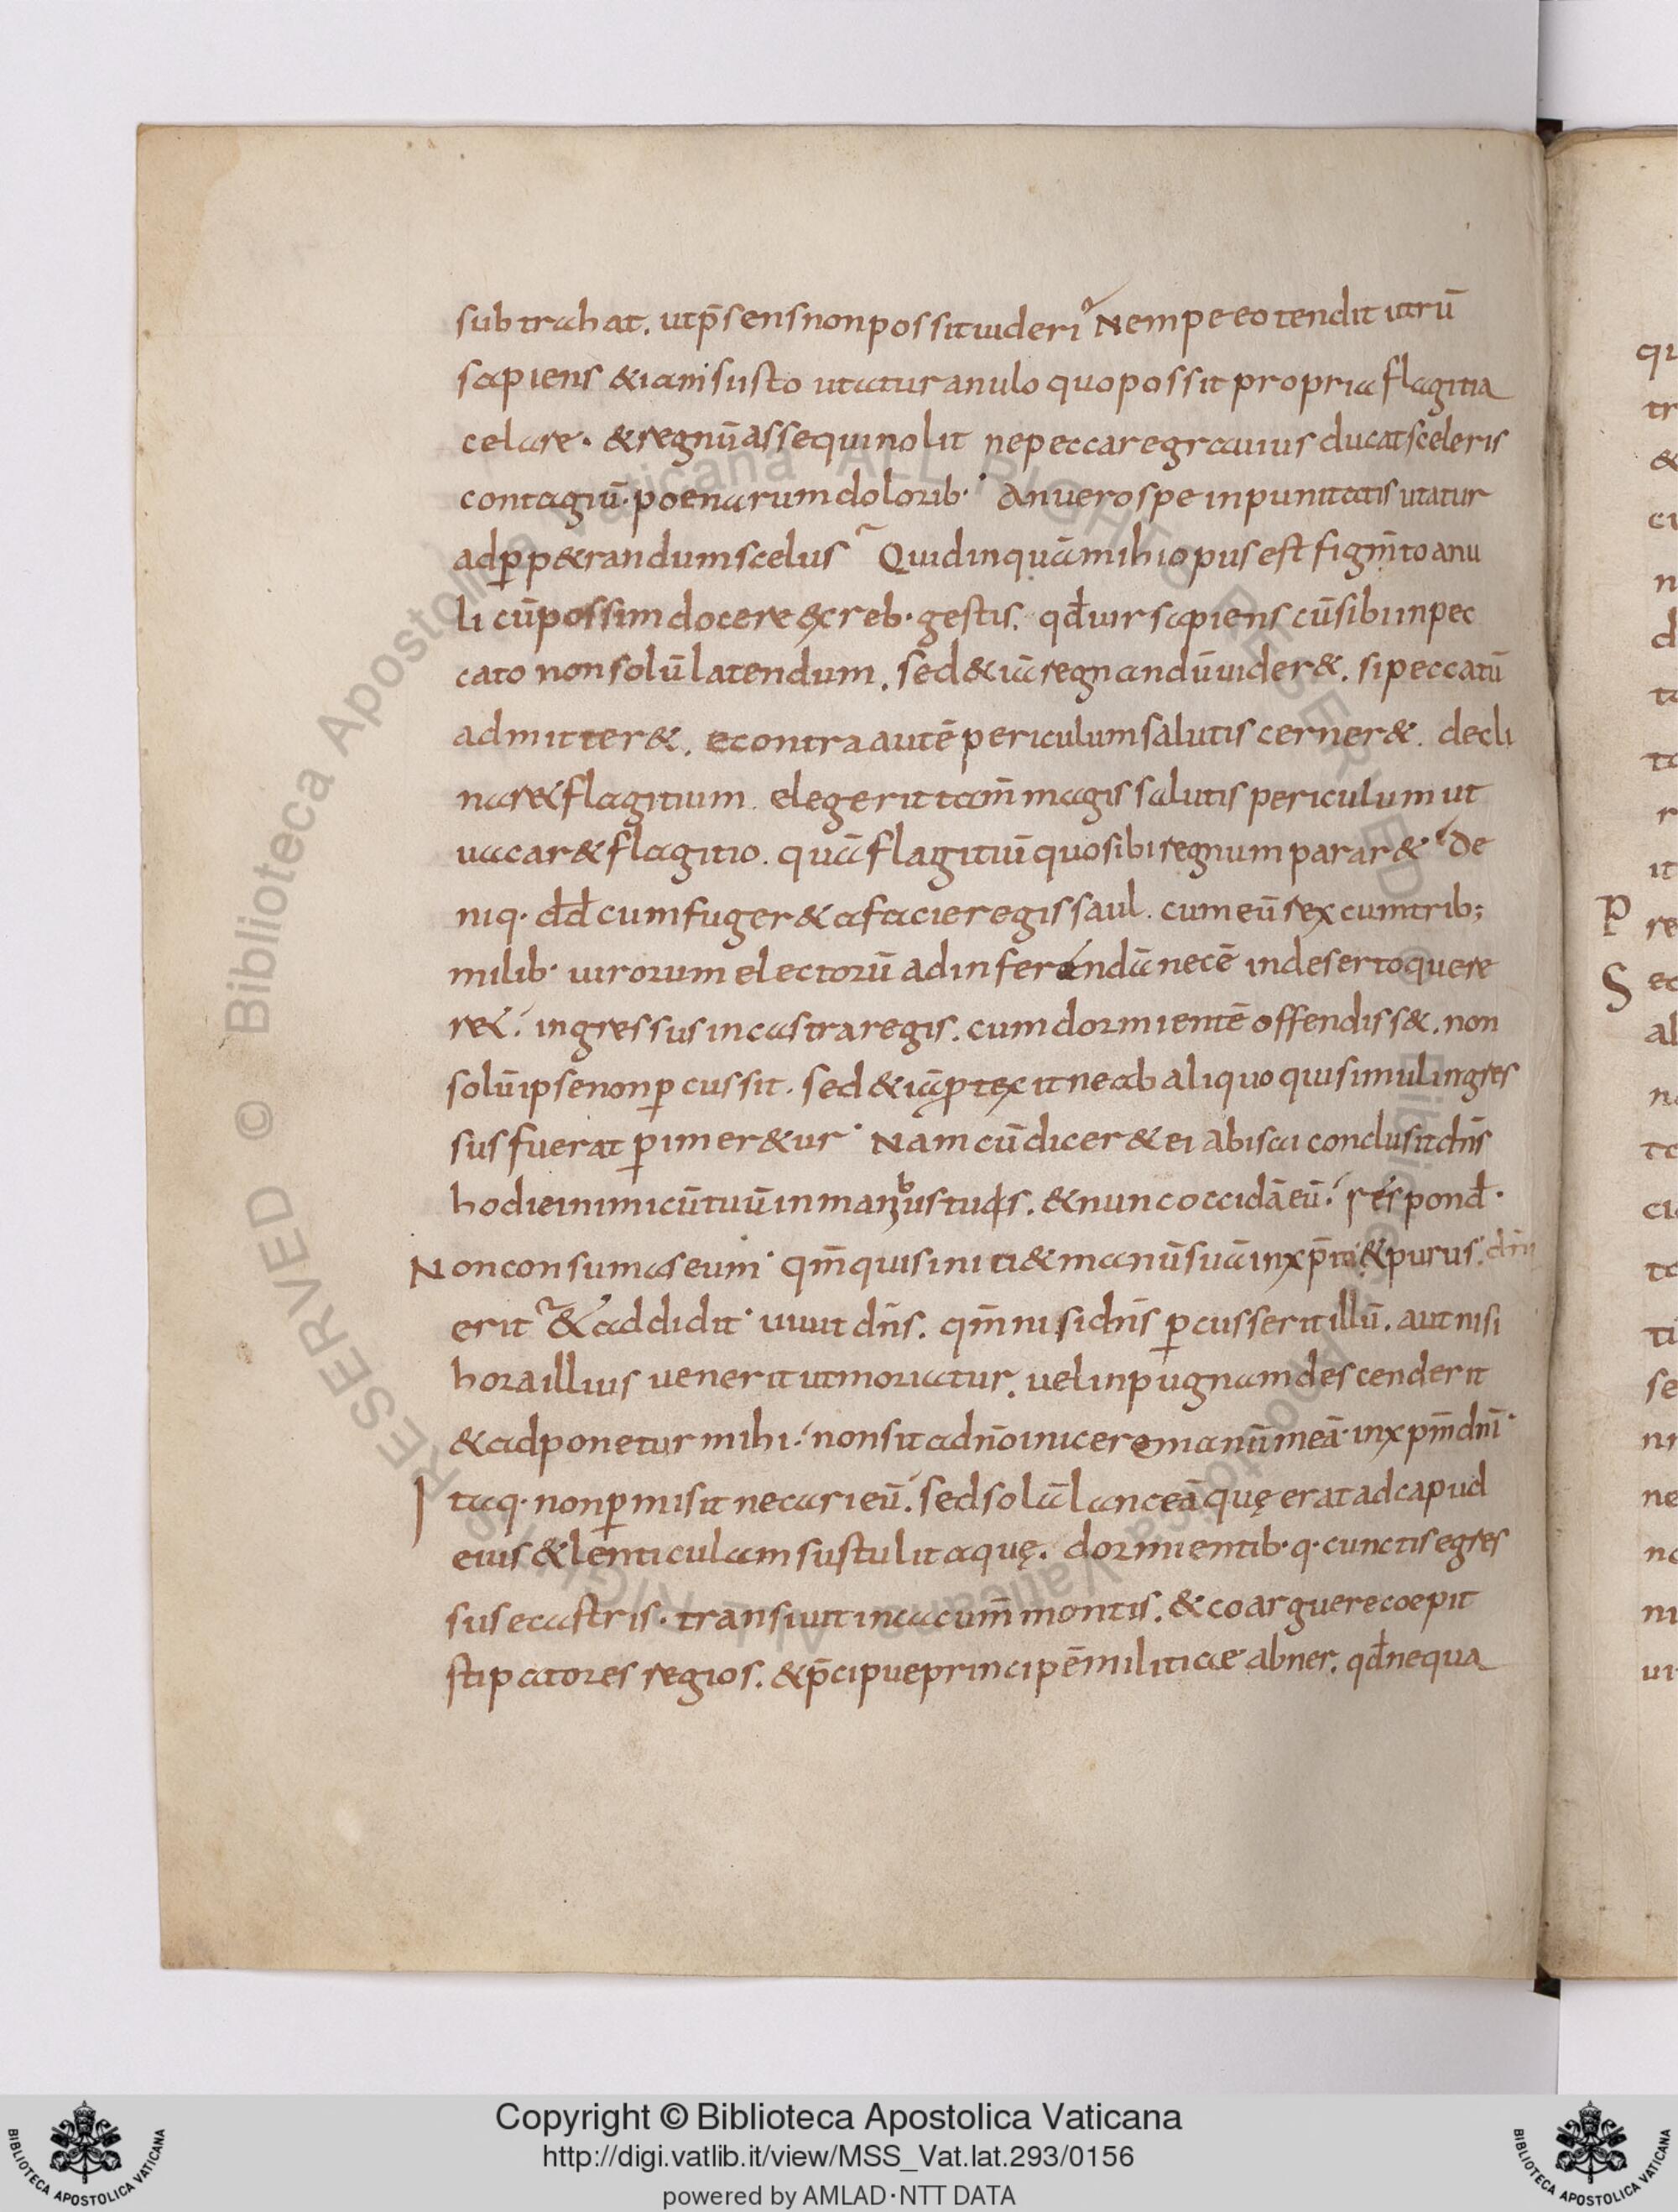 subtrahat. ut p̄sens non possit uideri? Nempe eo tendit utrū
sapiens & iam si isto utatur anulo quo possit propria flagitia
celare. & regnū assequi nolit ne peccare grauius ducat sceleris
contagiū. poenarum dolorib· An uero spe inpunitatis utatur
ad ꝑp&randum scelus? Quid inquā mihi opus est figm̄to anu
li cū possim docere ex reb· gestis. qđ uir sapiens cū sibi in pec
cato non solū latendum. sed & iā regnandū uider&. si peccatū
admitter&. econtra autē periculum salutis cerner&. decli
nar& flagitium. elegerit tam̄ magis salutis periculum ut
uacar& flagitio. quā flagitiū quo sibi regnum parar&. De
niq· dd̄ cum fuger& a facie regis saul. cum eū rex cum trib;
milib· uirorum electorū ad inferendā necē in deserto quere
r&. ingressus in castra regis. cum dormientē offendiss&. non
solū ipse non ꝑcussit. sed & iā ꝓtexit ne ab aliquo qui simul ingres
sus fuerat ꝑimer&ur. Nam cū dicer& ei abisai conclusit dn̄s
hodie inimicū tuū in manibus tuis. & nunc occidā eū. respond̄·
Non consumas eum. qm̄ quis initi& manū suā in xp̄m dn̄i & purus
erit? & addidit. uiuit dn̄s. qm̄ nisi dn̄s ꝑcusserit illū. aut nisi
hora illius uenerit ut moriatur. uel in pugnam descenderit
& adponetur mihi. non sit a dn̄o inicere manū meā in xp̄m dn̄i.
Itaq· non ꝑmisit necari eū. sed solā lanceā quę erat ad capud
eius & lenticulam sustulit aquę. dormientib· q· cunctis egres
sus e castris. transiuit in cacum̄ montis. & coarguere coepit
stipatores regios. & p̄cipue principē militiae abner. qđ nequa
qu
tr
&
cu
n
d
ta
ta
r
it
P re
S ec
al
na
tc
ci
to
ti
se
nr
ne
no
ni
ui
Copyright © Biblioteca Apostolica Vaticana
http://digi.vatlib.it/view/MSS_Vat.lat.293/0156
powered by AMLAD·NTT DATA
BIBLIOTECA APOSTOLICA VATICANA
BIBLIOTECA APOSTOLICA VATICANA